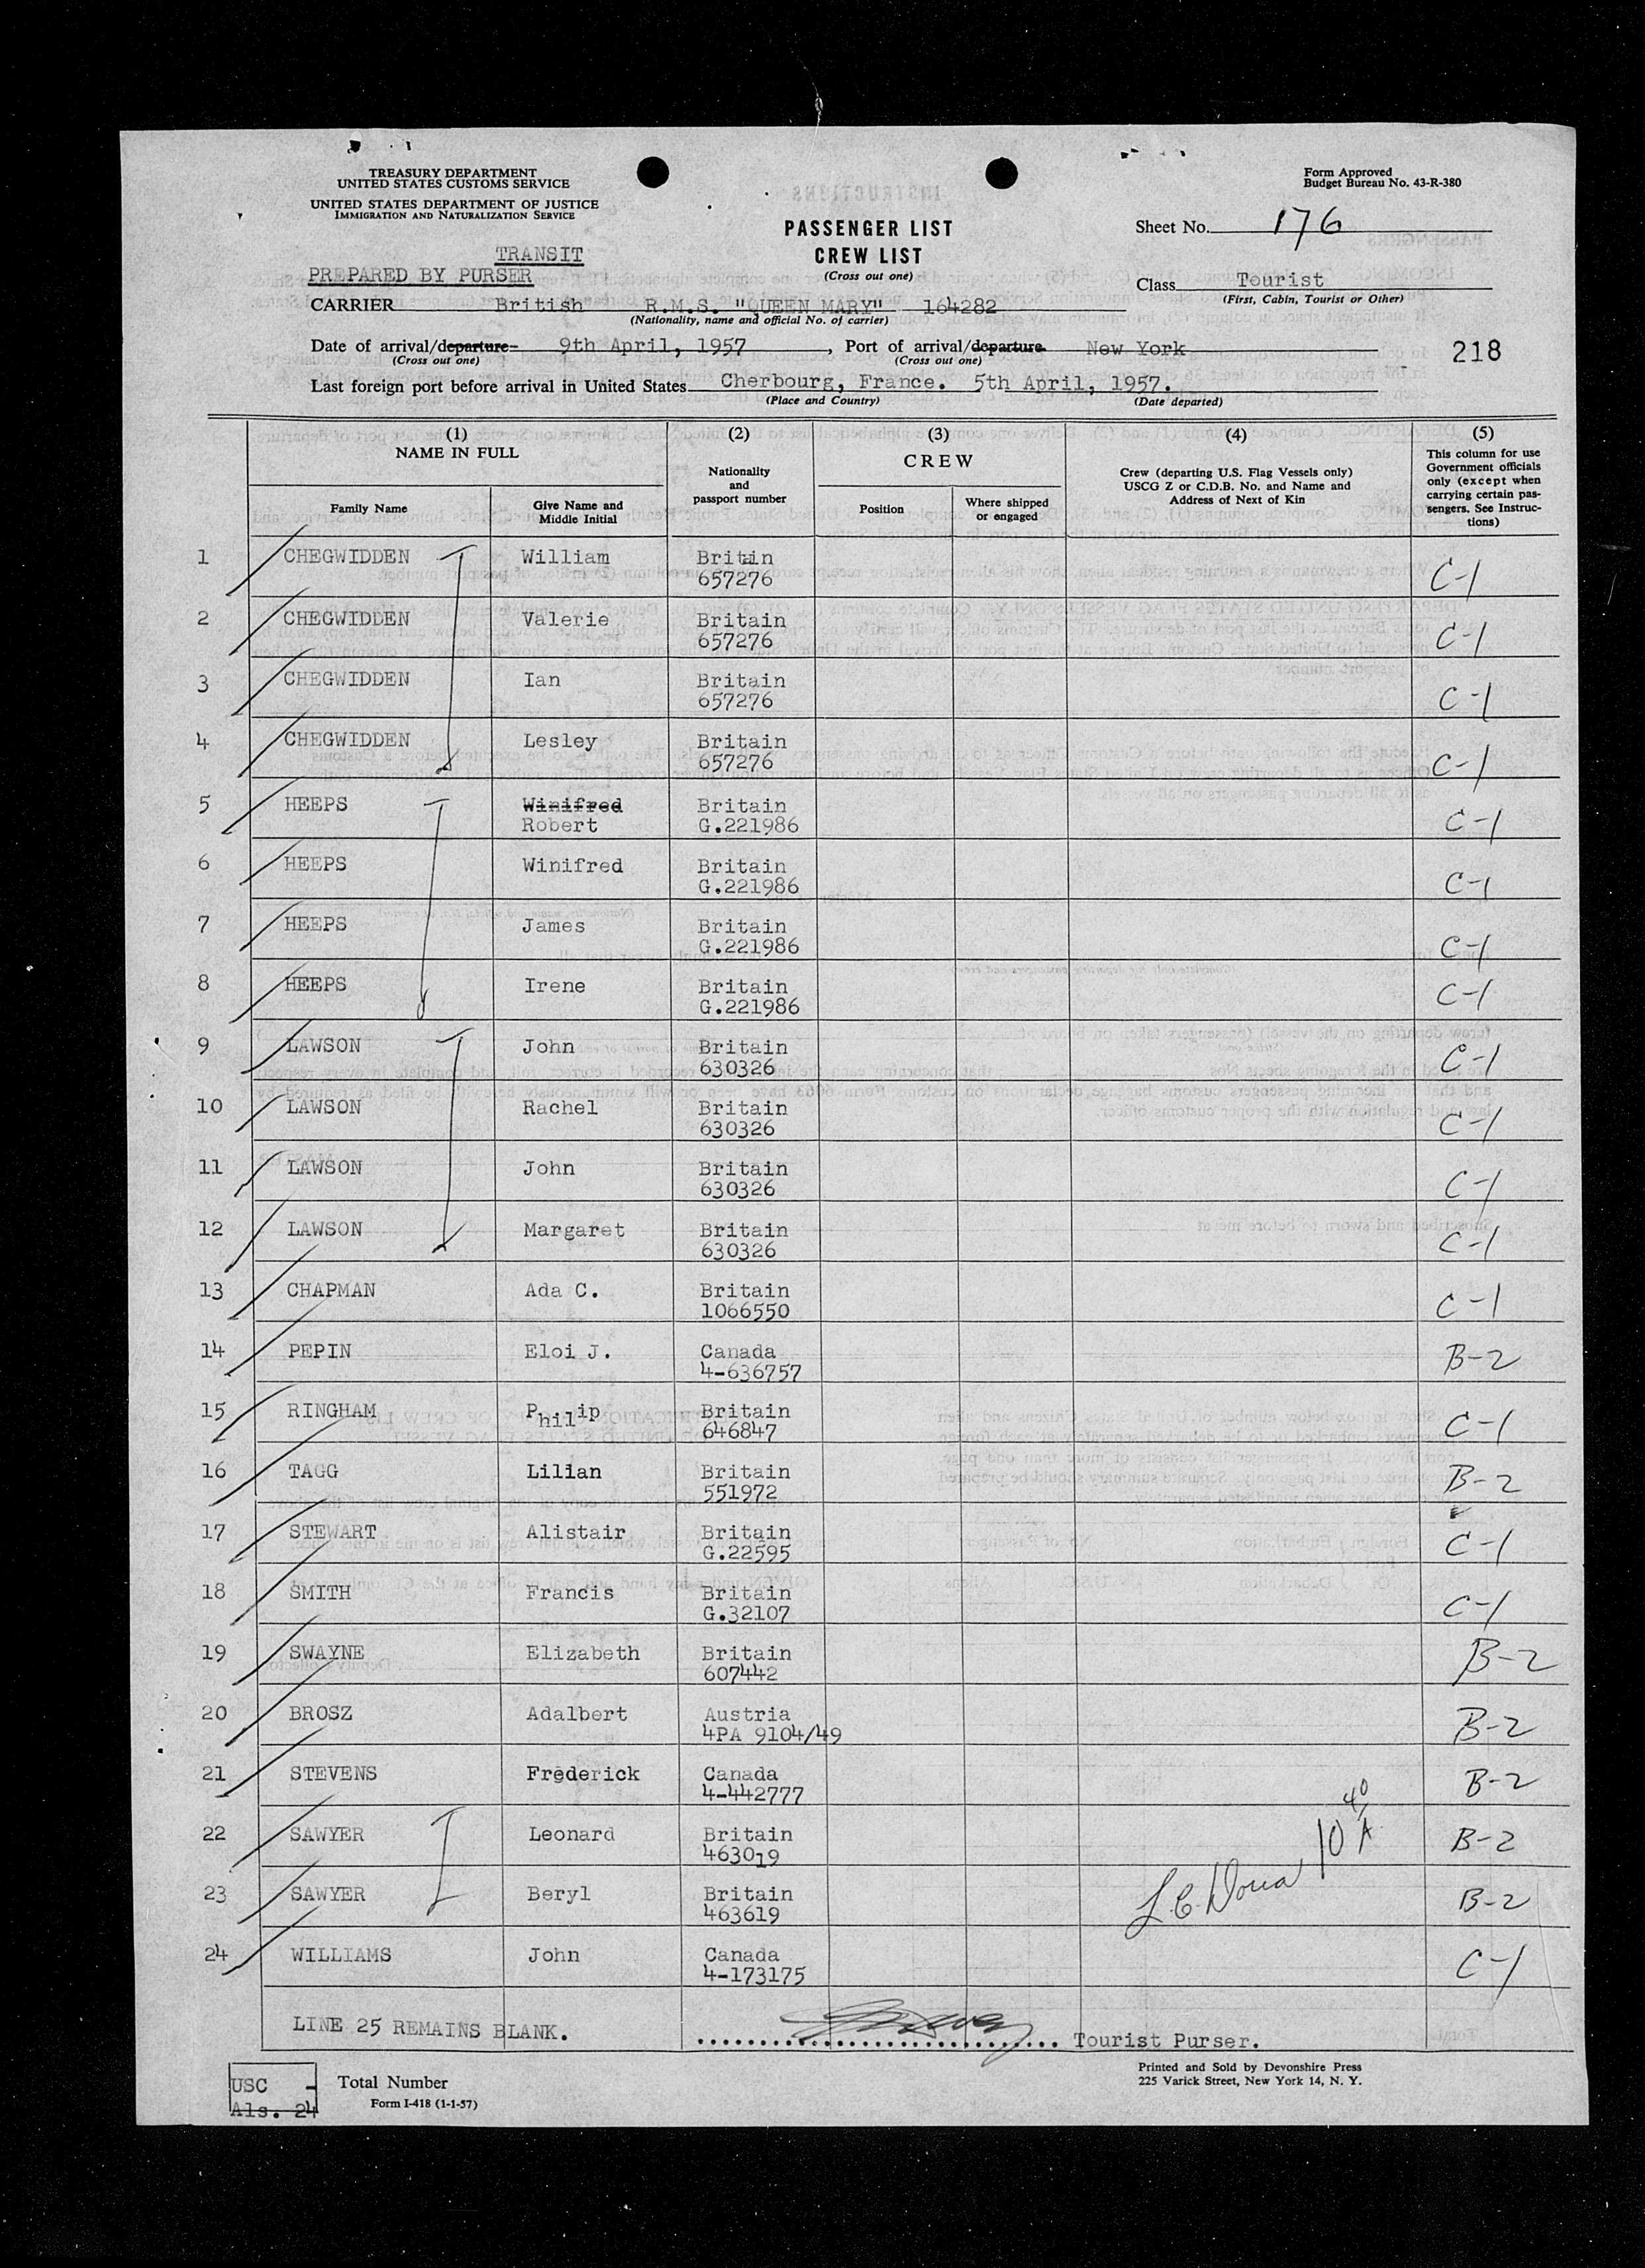 TREASURY DEPARTMENT
UNITED STATES CUSTOMS SERVICE
UNITED STATES DEPARTMENT OF JUSTICE
IMMIGRATION AND NATURALIZATION SERVICE
Form Approved
Budget Bureau No. 43-R-380
PASSENGER LIST
CREW LIST
(Cross out one)
Sheet No. 176
TRANSIT
PREPARED BY PURSER
Class Tourist
(First, Cabin, Tourist or Other)
CARRIER British R.M.S. "QUEEN MARY" 164282
(Nationality, name and official No. of carrier)
Date of arrival/departure 9th April, 1957, Port of arrival/departure New York
(Cross out one) (Cross out one)
218
Last foreign port before arrival in United States Cherbourg, France. 5th April, 1957.
(Place and Country) (Date departed)
(1) NAME IN FULL
Family Name
Give Name and Middle Initial
(2) Nationality and passport number
(3) CREW
Position
Where shipped or engaged
(4) Crew (departing U.S. Flag Vessels only) USCG Z or C.D.B. No. and Name and Address of Next of Kin
(5) This column for use Government officials only (except when carrying certain pas-sengers. See Instruc-tions)
1 CHEGWIDDEN William Britain 657276 C-1
2 CHEGWIDDEN Valerie Britain 657276 C-1
3 CHEGWIDDEN Ian Britain 657276 C-1
4 CHEGWIDDEN Lesley Britain 657276 C-1
5 HEEPS Winifred Robert Britain G.221986 C-1
6 HEEPS Winifred Britain G.221986 C-1
7 HEEPS James Britain G.221986 C-1
8 HEEPS Irene Britain G.221986 C-1
9 LAWSON John Britain 630326 C-1
10 LAWSON Rachel Britain 630326 C-1
11 LAWSON John Britain 630326 C-1
12 LAWSON Margaret Britain 630326 C-1
13 CHAPMAN Ada C. Britain 1066550 C-1
14 PEPIN Eloi J. Canada 4-636757 B-2
15 RINGHAM Philip Britain 646847 C-1
16 TAGG Lilian Britain 551972 B-2
17 STEWART Alistair Britain G.22595 C-1
18 SMITH Francis Britain G.32107 C-1
19 SWAYNE Elizabeth Britain 607442 B-2
20 BROSZ Adalbert Austria 4PA 9104/49 B-2
21 STEVENS Frederick Canada 4-442777 B-2
22 SAWYER Leonard Britain 463019 B-2
23 SAWYER Beryl Britain 463619 B-2
24 WILLIAMS John Canada 4-173175 C-1
LINE 25 REMAINS BLANK.
Tourist Purser.
USC -
Als. 24
Total Number
Form I-418 (1-1-57)
Printed and Sold by Devonshire Press
225 Varick Street, New York 14, N. Y.